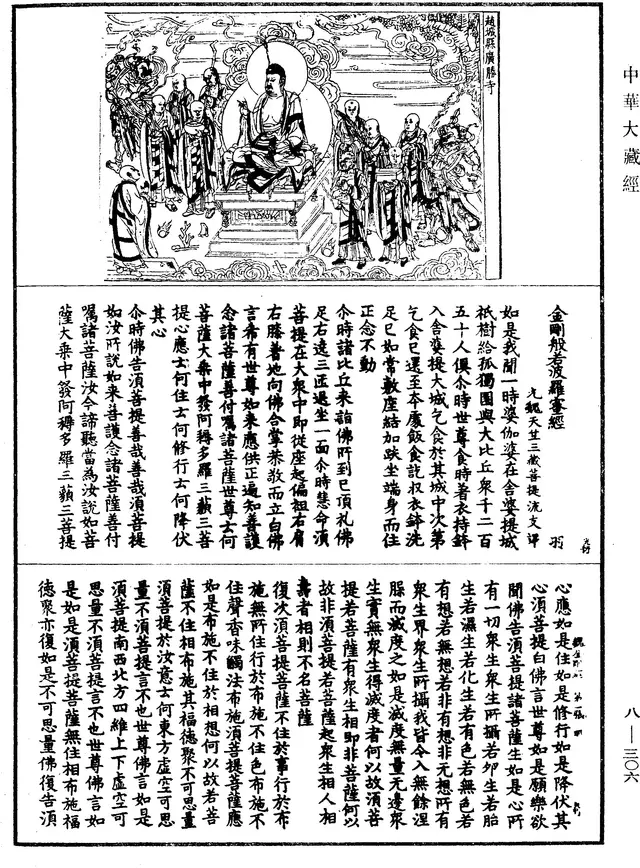 中華大藏經
趙城縣廣勝寺
金剛般若波羅蜜經
元魏天竺三藏菩提流支譯
羽
如是我聞一時婆伽婆在舍婆提城
祇樹給孤獨園與大比丘眾千二百
五十人俱尒時世尊食時著衣持鉢
入舍婆提大城乞食於其城中次第
乞食已還至本處飯食訖収衣鉢洗
足已如常敷座結加趺坐端身而住
正念不動
尒時諸比丘來詣佛所到已頂礼佛
足右遶三匝退坐一面尒時慧命須
菩提在大眾中即從座起偏袒右肩
右膝著地向佛合掌恭敬而立白佛
言希有世尊如來應供正遍知善護
念諸菩薩善付囑諸菩薩世尊云何
菩薩大乘中發阿耨多羅三藐三菩
提心應云何住云何修行云何降伏
其心
尒時佛告須菩提善哉善哉須菩提
如汝所說如來善護念諸菩薩善付
囑諸菩薩汝今諦聽當為汝說如菩
薩大乘中發阿耨多羅三藐三菩提
心應如是住如是修行如是降伏其
心須菩提白佛言世尊如是願樂欲
聞佛告須菩提諸菩薩生如是心所
有一切眾生眾生所攝若卵生若胎
生若濕生若化生若有色若無色若
有想若無想若非有想非無想所有
眾生界眾生所攝我皆令入無餘涅
槃而滅度之如是滅度無量無邊眾
生實無眾生得滅度者何以故須菩
提若菩薩有眾生相即非菩薩何以
故非須菩提若菩薩起眾生相人相
壽者相則不名菩薩
復次須菩提菩薩不住於事行於布
施無所住行於布施不住色布施不
住聲香味觸法布施須菩提菩薩應
如是布施不住於相想何以故若菩
薩不住相布施其福德聚不可思量
須菩提於汝意云何東方虛空可思
量不須菩提言不也世尊佛言如是
須菩提南西北方四維上下虛空可
思量不須菩提言不也世尊佛言如
是如是須菩提菩薩無住相布施福
德聚亦復如是不可思量佛復告須
八—三〇六